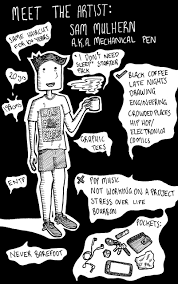 MEET THE ARTIST:
SAM MULHERN
A.K.A. MECHANICAL PEN
SAME HAIRCUT
FOR
"I DON'T NEED
SLEEP" STARTER
PACK
20 YO
BLACK COFFEE
LATE NIGHTS
DRAWING
ENGINEERING
CROWDED PLACES
HIP HOP/
ELECTRONICA
COMICS
GRAPHIC
TEES
ENTP
POP MUSIC
NOT WORKING ON A PROJECT
STRESS OVER LIFE
BOURBON
POCKETS:
NEVER BAREFOOT